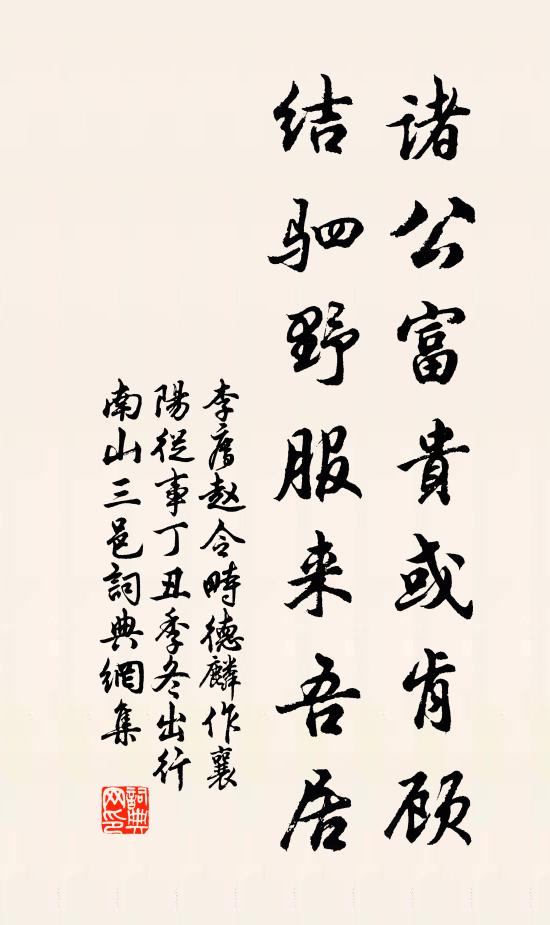 诸公富貴或肯顾
结驷野服来吾居
李廌赵令畤德麟作襄
陽従事丁丑季冬出行
南山三邑詞典網集
詞典
网印